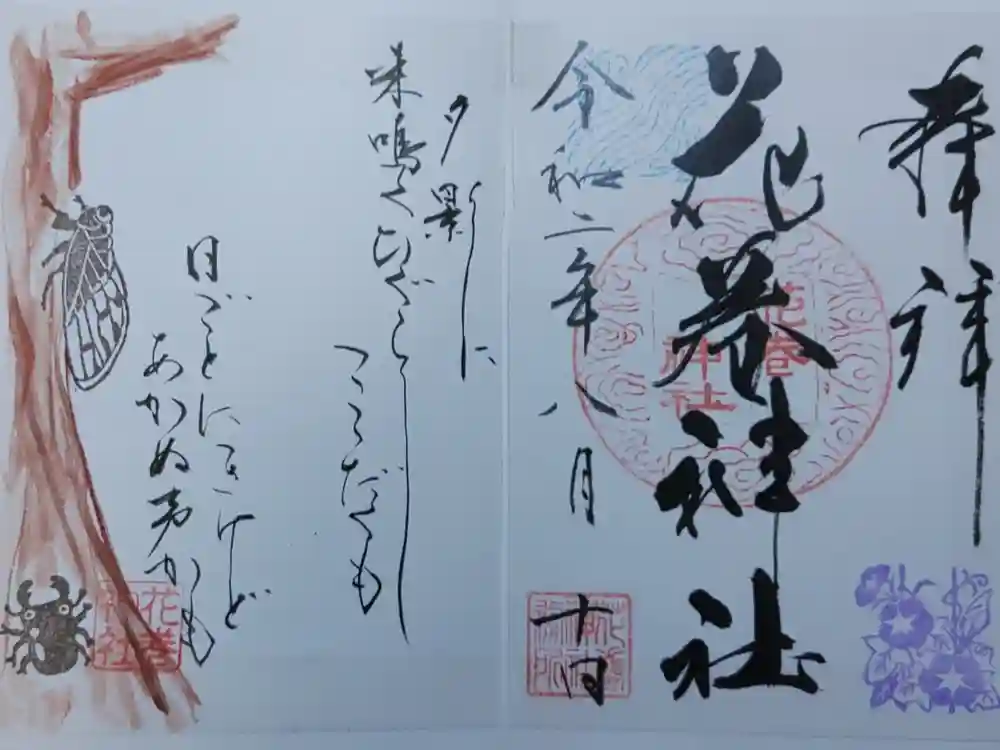 奉拝
花巻神社
花巻
神社
令和二年八月十日
夕影に
来鳴くひぐらし
こゝだくも
日ごとにきけど
あかぬ声かも
花巻
神社